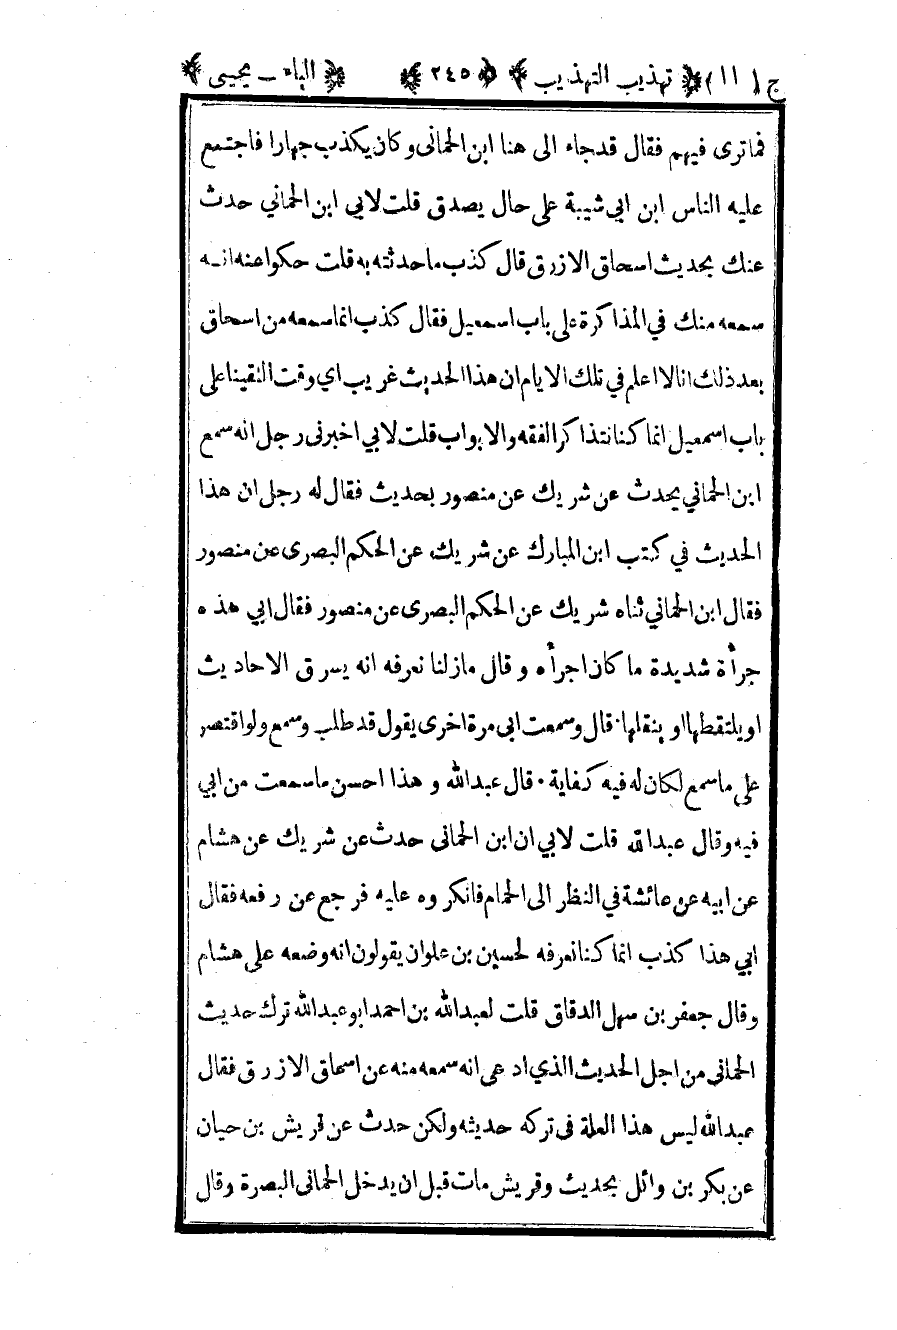 ج (١١) ﴿ تهذيب التهذيب ﴾ ﴿٢٤٥﴾ ﴿ الياء ـ يحيى ﴾
فماترى فيهم فقال قدجاء الى هنا ابن الحمانى وكان يكذب جهارا فاجتمع
عليه الناس ابن ابي شيبة على حال يصدق قلت لابي ابن الحماني حدث
عنك بحديث اسحاق الازرق قال كذب ماحدثته به قلت حكواعنه انـه
سمعه منك في المذاكرة على باب اسمعيل فقال كذب انماسمعه من اسحاق
بعد ذلك انا لا اعلم في تلك الايام ان هذا الحديث غريب اى وقت التقينا على
باب اسمعيل انما كنا نتذاكر الفقه والابواب قلت لابي اخبرنى رجل انه سمع
ابن الحماني يحدث عن شريك عن منصور بحديث فقال له رجل ان هذا
الحديث في كتب ابن المبارك عن شريك عن الحكم البصرى عن منصور
فقال ابن الحماني ثناه شريك عن الحكم البصرى عن منصور فقال ابي هذه
جرأة شديدة ما كان اجرأه وقال مازلنا نعرفه انه يسرق الاحاديث
او يلتقطها او ينقلها٠ قال وسمعت ابى مرة اخرى يقول قد طلب وسمع ولواقتصر
على ماسمع لكان له فيه كفاية ٠ قال عبدالله و هذا احسن ماسمعت من ابي
فيه وقال عبدالله قلت لابي ان ابن الحمانى حدث عن شريك عن هشام
عن ابيه عن عائشة في النظر الى الحمام فانكروه عليه فرجع عن رفعه فقال
ابي هذا كذب انما كنا نعرفه لحسين بن علوان يقولون انه وضعه على هشام
وقال جعفر بن سهل الدقاق قلت لعبدالله بن احمد ابوعبدالله ترك حديث
الحمانى من اجل الحديث الذي ادعى انه سمعه منه عن اسحاق الازرق فقال
عبدالله ليس هذا العلة فى تركه حديثه ولكن حدث عن قريش بن حيان
عن بكر بن وائل بحديث وقريش مات قبل ان يدخل الحمانى البصرة وقال